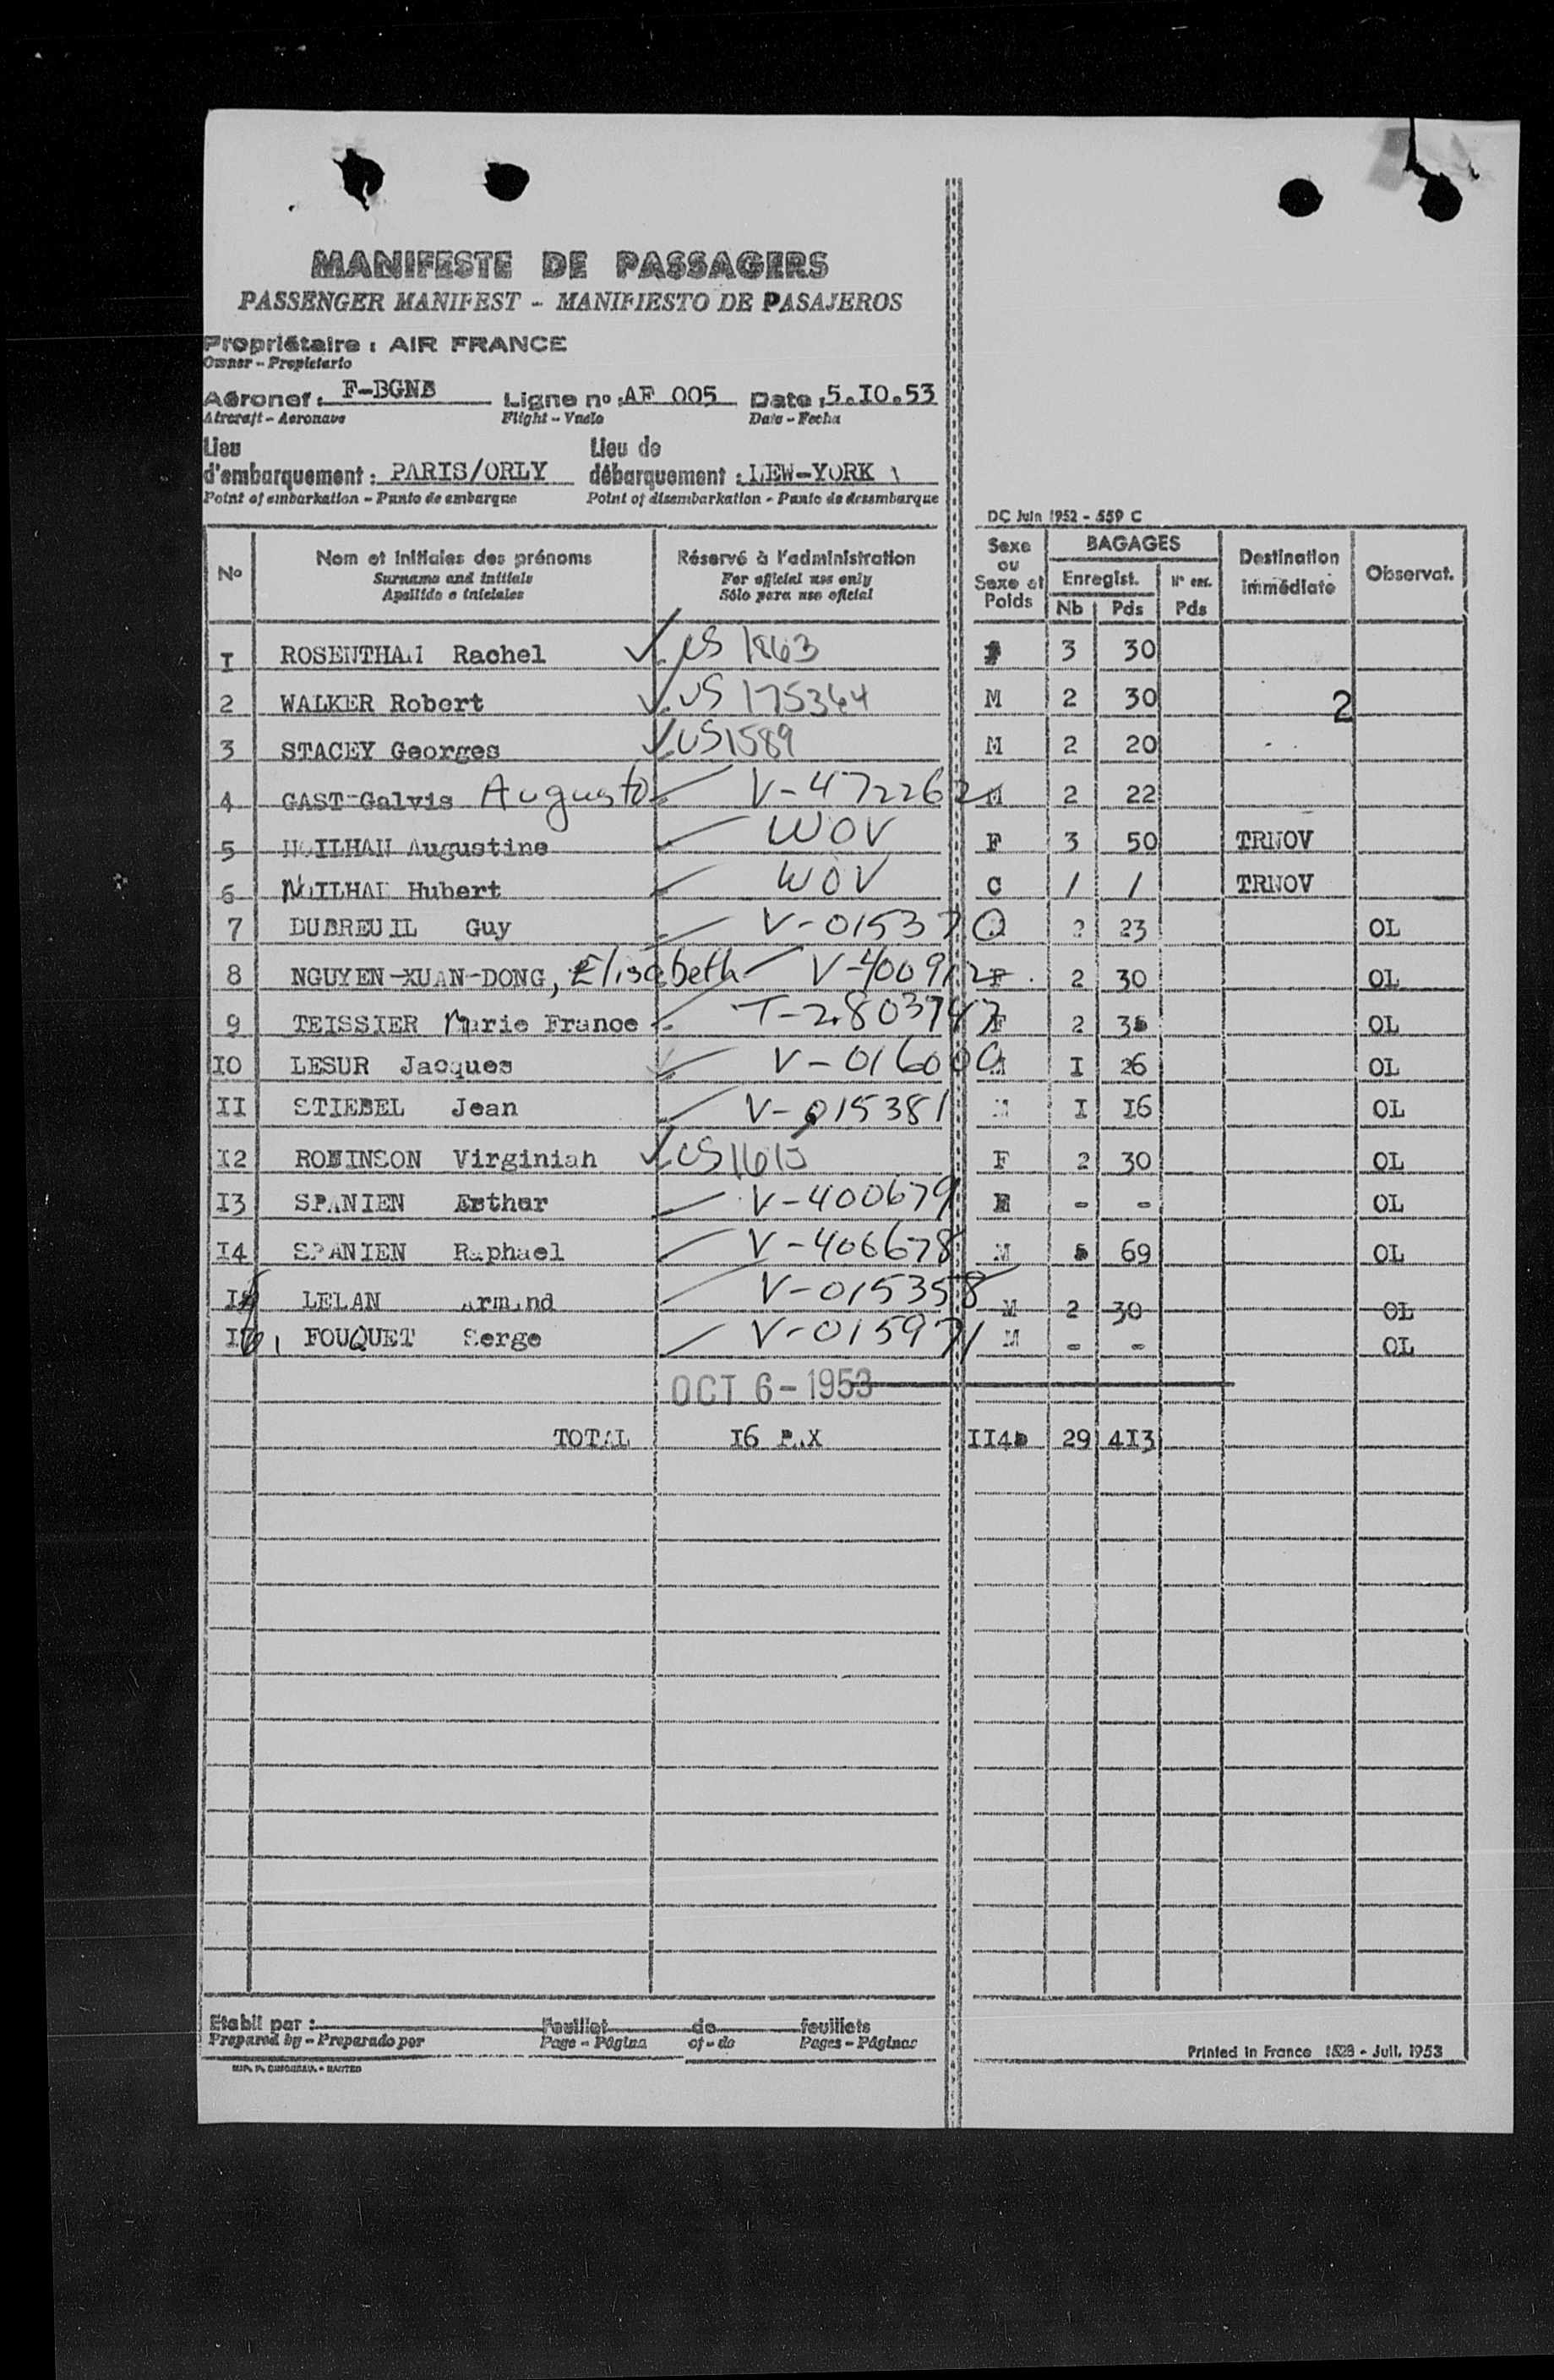 MANIFESTE DE PASSAGERS
PASSENGER MANIFEST - MANIFIESTO DE PASAJEROS
Propriétaire : AIR FRANCE
Owner - Propietario
Aéronef : F-BGNB Ligne no : AF 005 Date : 5.I0.53
Aircraft - Aeronave Flight - Vuelo Date - Fecha
Lieu d'embarquement : PARIS/ORLY Lieu de débarquement : LEW-YORK
Point of embarkation - Punto de embarque Point of disembarkation - Punto de desembarque
DC Juin 1952 - 559 C
No Nom et initiales des prénoms Réservé à l'administration Sexe ou Sexe et Poids BAGAGES Destination immédiate Observat.
Surname and initials For official use only Enregist.
Apellido e iniciales Sólo para uso oficial Nb Pds Pds
I ROSENTHAM Rachel US 1863 3 30
2 WALKER Robert US 175364 M 2 30 2
3 STACEY Georges US 1589 M 2 20
4 GAST-Galvis Augusto V-472262 M 2 22
5 NOILHAN Augustine WOV F 3 50 TRNOV
6 NOILHAN Hubert WOV C / / TRNOV
7 DUBREUIL Guy V-015370 2 23 OL
8 NGUYEN-XUAN-DONG, Elisabeth V-400912 F 2 30 OL
9 TEISSIER Marie France T-2803747 F 2 OL
I0 LESUR Jacques V-016000 M I 26 OL
II STIEBEL Jean V-015381 M I I6 OL
I2 ROBINSON Virginiah US 1615 F 2 30 OL
I3 SPANIEN Esther V-400679 F - - OL
I4 SPANIEN Raphael V-400678 M 5 69 OL
I5 LELAN Armand V-015358 M 2 30 OL
I6 FOUQUET Serge V-015971 M - - OL
OCT 6 - 1953
TOTAL I6 PAX II45 29 4I3
Etabli par : Feuillet de feuillets
Prepared by - Preparado por Page - Página of - de Pages - Páginas
Printed in France 1528 - Juil. 1953